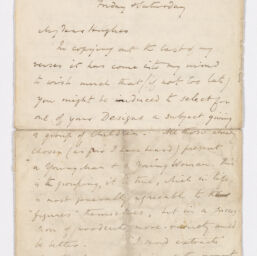 Friday & Saturday
My dear Hughes
In copying out the last of my
verses it has come into my mind
to wish much that (if not too late)
you might be induced to select for
one of your Designs a subject giving
a group of children. All those
chosen (as far I have heard) present
a Young man & a Young Woman. This
is the grouping, it is true, which in life,
is most generally agreeable to the
"figures" themselves, but in a
of woodcuts more variety would
be better.